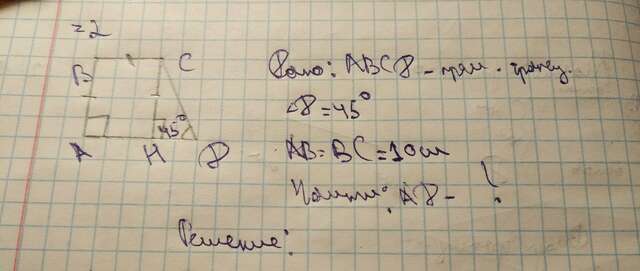 =2
B C
45°
A H D
Дано: ABCD - прям. трапец.
∠D=45°
AB=BC=10см
Найти: AD - ?
Решение: